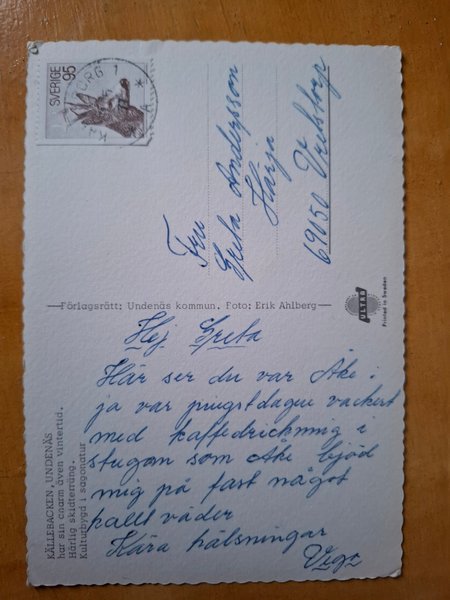 SVERIGE 95
BORG 1
Fru
Greta Andersson
Härja
69050 Vretstorp
Förlagsrätt: Undenäs kommun. Foto: Erik Ahlberg
ULTRA
Printed in Sweden
Hej Greta
Här ser du var Åke i
ja var pingstdagen vackert
med kaffedrickning i
stugan som Åke bjöd
mig på fast något
kallt väder
Kära hälsningar
KÄLLEBACKEN, UNDENÄS
har sin charm även vintertid.
Härlig skidterräng.
Kulturbygd i sagonatur